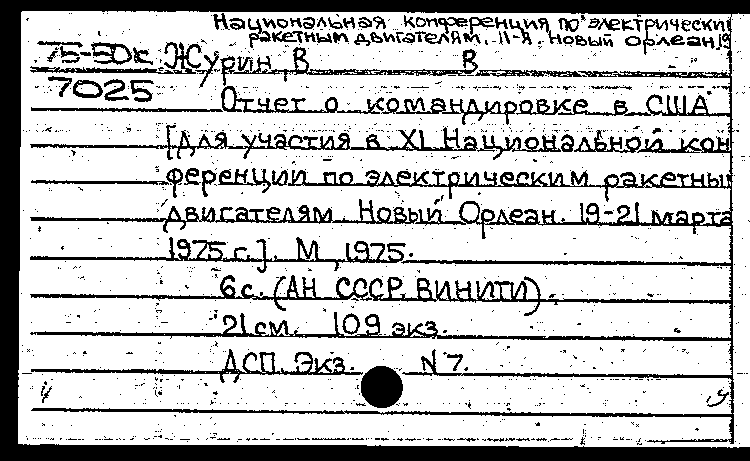 Национальная конференция по электрически
ракетным двигателям. 11-я. Новый Орлеан, 19
75-50к Журин, В В
7025
Отчет о командировке в США
[для участия в XI Национальной кон
ференции по электрическим ракетны
двигателям. Новый Орлеан. 19-21 марта
1975 г.]. М., 1975.
6 с. (АН СССР. ВИНИТИ).
21 см. 109 экз.
ДСП. Экз. N 7.